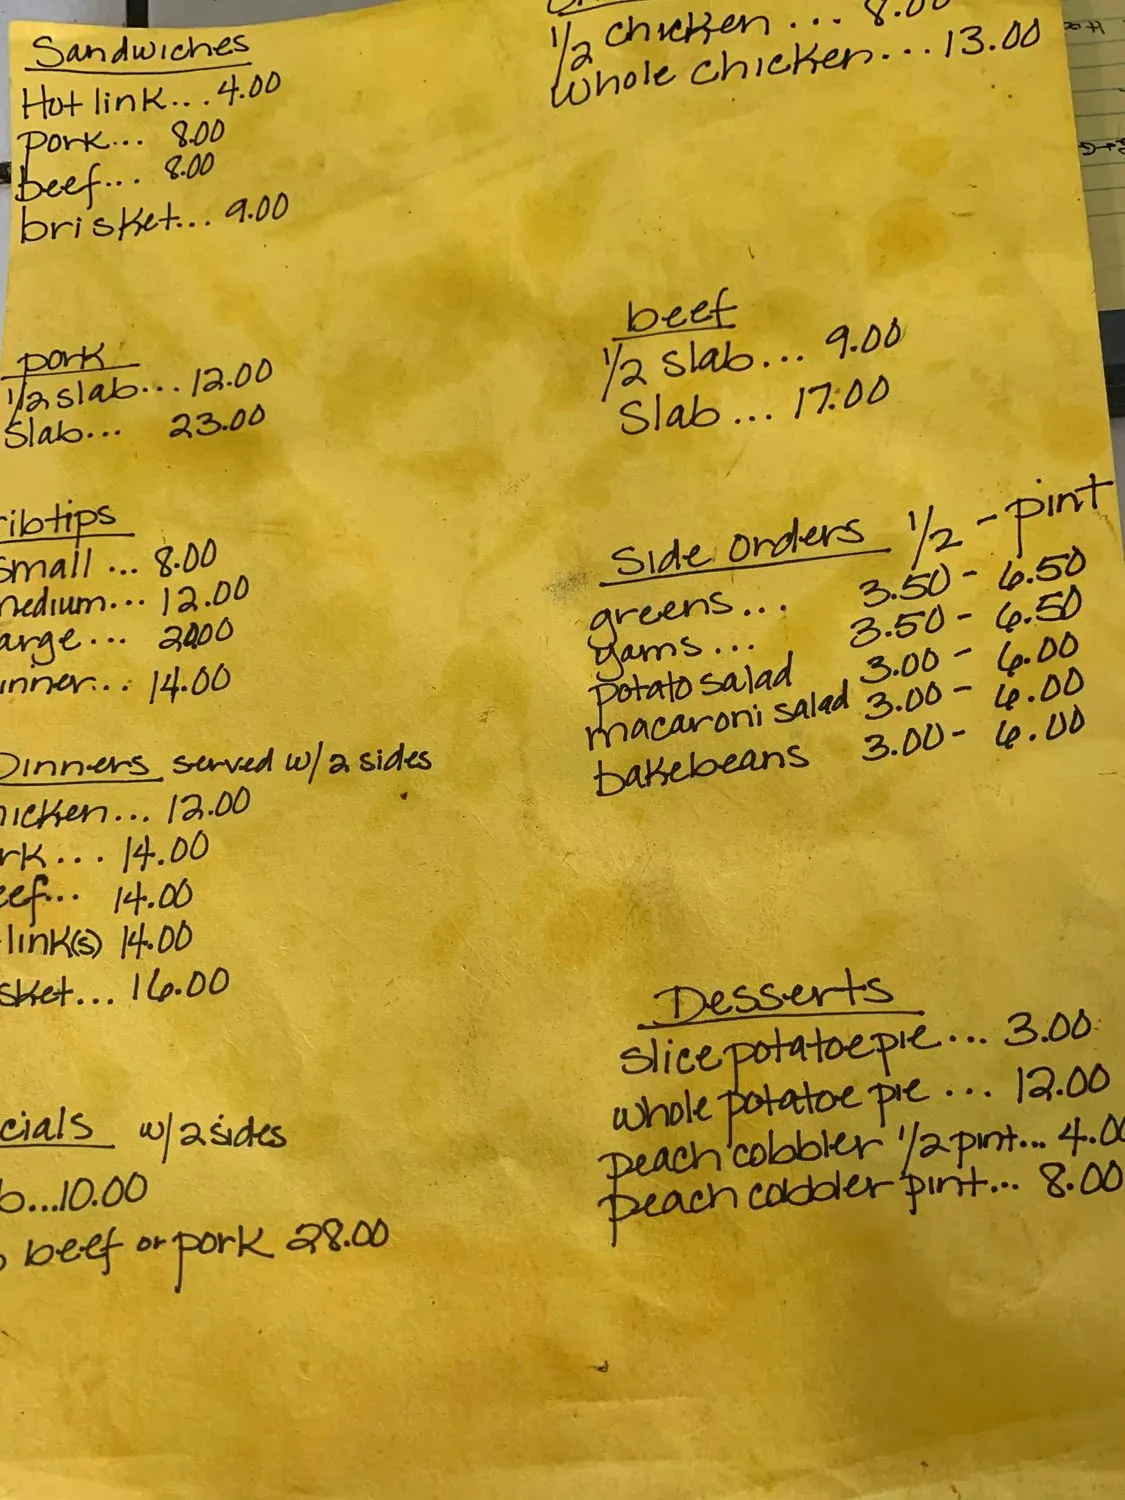 Sandwiches
Hot link... 4.00
pork... 8.00
beef... 8.00
brisket... 9.00
1/2 chicken ... 8.00
whole chicken... 13.00
pork
1/2 slab... 12.00
Slab... 23.00
beef
1/2 slab... 9.00
Slab... 17.00
ribtips
small ... 8.00
medium... 12.00
arge... 20.00
inner... 14.00
Side orders 1/2 - pint
greens... 3.50 - 6.50
yams... 3.50 - 6.50
potato salad 3.00 - 6.00
macaroni salad 3.00 - 6.00
bakebeans 3.00 - 6.00
Dinners served w/ 2 sides
hicken... 12.00
rk... 14.00
eef... 14.00
link(s) 14.00
sket... 16.00
cials w/ 2 sides
b...10.00
beef or pork 28.00
Desserts
slice potatoe pie... 3.00
whole potatoe pie ... 12.00
peach cobbler 1/2 pint... 4.00
peach cobbler pint... 8.00